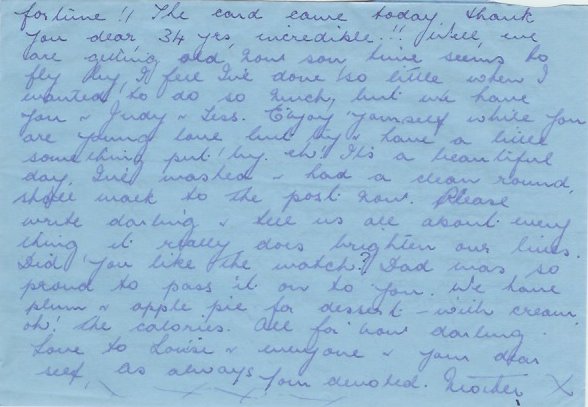 fortune!! The card came today thank
you dear 34 yrs, incredible!! Well, we
are getting old now son, time seems to
fly by, I feel I've done so little when I
wanted to do so much, but we have
you & Judy & Less. Enjoy yourself while you
are young love but try & have a little
something put by. eh! It's a beautiful
day, I've washed & had a clean round,
shall walk to the post now. Please
write darling & tell us all about every
thing it really does brighten our lives.
Did you like the watch? Dad was so
proud to pass it on to you. We have
plum & apple pie for dessert - with cream,
oh! the calories. All for now darling
Love to Louise & everyone & your dear
self, as always your devoted. Mother X
x x x x